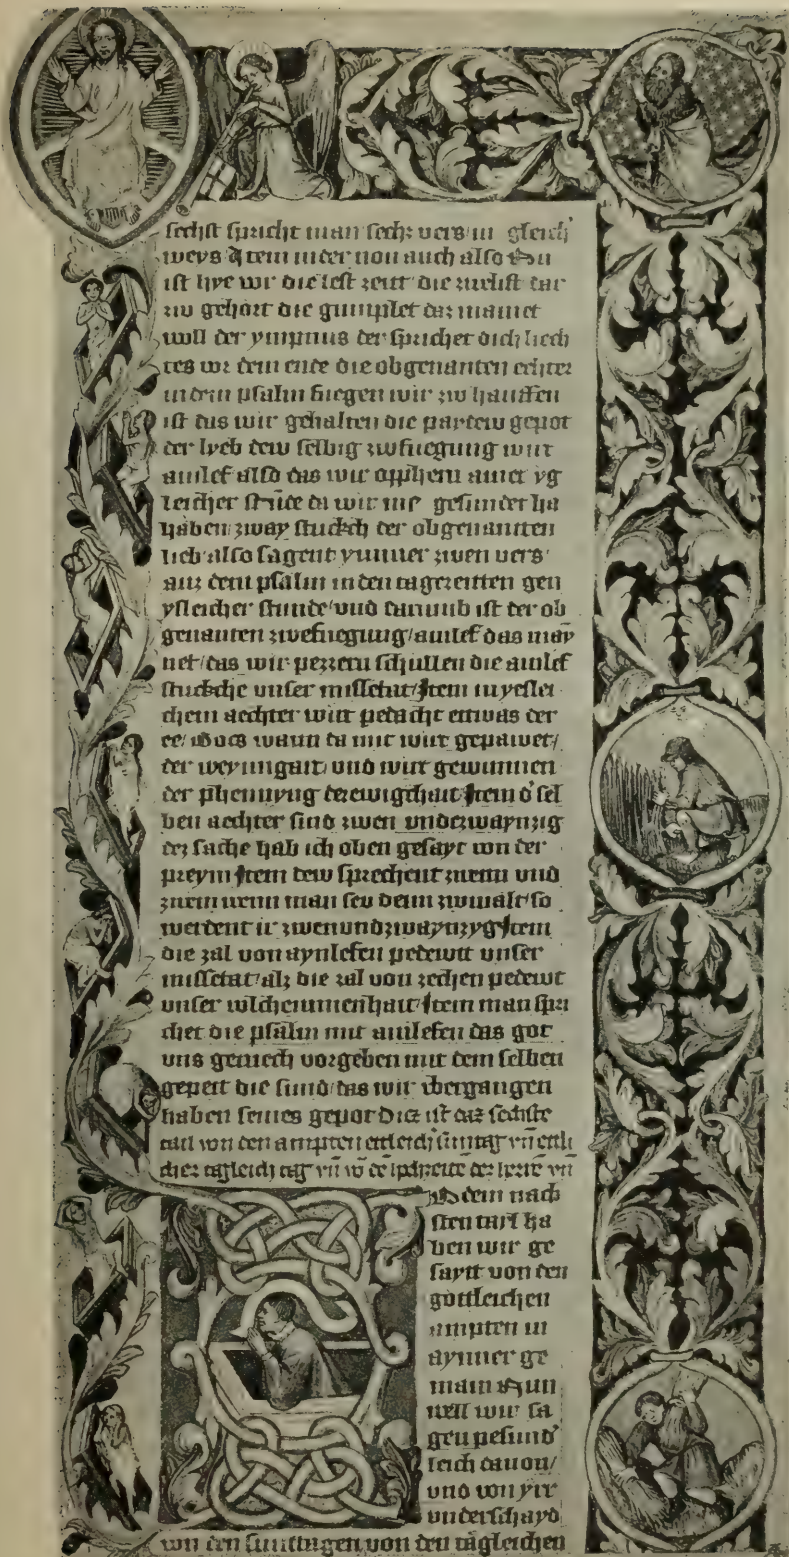 sechst spricht man sechz vers in gleich
weys Item in der non auch also Nu
ist hye wir die lest zeitt die zuchst dar
zu gehört die gumplet daz mainet
woll der ympnus der sprichet dich liech
tes wir dem ende die obgenanten echter
in dem psalm fuegen wir zw hauffen
ist das wir gehalten die partew gepot
der lyeb dew selbig zwfuegung wirt
ainlef also das wir opphern ainer yg
leicher stunde da wir inne gesundet ha
haben zway stuckch der obgenannten
lieb also sagent ymmer zwen vers
auz dem psalm in den tagezeitten gen
ysleicher stunde und darumb ist der ob
genanten zwefuegung ainlef das may
net das wir pezzern schullen die ainlef
stuckche unser missetat Item in yeslei
chem aechter wirt pedacht ettwas der
ee Gots wann da mit wirt gepawet
der weyngart und wirt gewunnen
der phennyng der ewigchait Item d sel
ben aechter sind zwen underzwaynzig
der sache hab ich oben gesayt von der
preym Item dew sprechent zwenn und
zwenn wenn man sev denn zwivalt so
werdent ir zwenundzwaynzyg Item
die zal von aynlefen pedewtt unser
missetat als die zal von zechen pedewt
unser volchemmenhait Item man spri
chet die psalm mit ainlefen das got
uns geruech vorgeben mit dem selben
gepett die sund das wir übergangen
haben seines gepot Diez ist daz sechste
tail von den ampten ettleich suntag vn ettli
cher tägleich tag vn
dem nach
sten tail ha
ben wir ge
saytt von den
göttleichen
ampten in
aynner ge
main Nun
well wir sa
gen pesund
leich davon
und von yrr
underschayd
von den sunttagen von den tägleichen